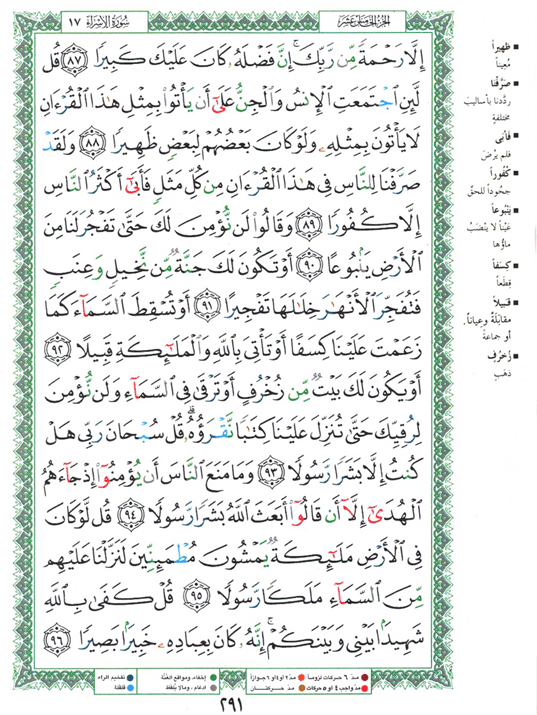 الجزء الخامس عشر
سورة الإسراء ١٧
إِلَّا رَحْمَةً مِّن رَّبِّكَ إِنَّ فَضْلَهُۥ كَانَ عَلَيْكَ كَبِيرًا ٨٧ قُل
لَّئِنِ ٱجْتَمَعَتِ ٱلْإِنسُ وَٱلْجِنُّ عَلَىٰٓ أَن يَأْتُوا۟ بِمِثْلِ هَٰذَا ٱلْقُرْءَانِ
لَا يَأْتُونَ بِمِثْلِهِۦ وَلَوْ كَانَ بَعْضُهُمْ لِبَعْضٍ ظَهِيرًا ٨٨ وَلَقَدْ
صَرَّفْنَا لِلنَّاسِ فِى هَٰذَا ٱلْقُرْءَانِ مِن كُلِّ مَثَلٍ فَأَبَىٰٓ أَكْثَرُ ٱلنَّاسِ
إِلَّا كُفُورًا ٨٩ وَقَالُوا۟ لَن نُّؤْمِنَ لَكَ حَتَّىٰ تَفْجُرَ لَنَا مِنَ
ٱلْأَرْضِ يَنۢبُوعًا ٩٠ أَوْ تَكُونَ لَكَ جَنَّةٌ مِّن نَّخِيلٍ وَعِنَبٍ
فَتُفَجِّرَ ٱلْأَنْهَٰرَ خِلَٰلَهَا تَفْجِيرًا ٩١ أَوْ تُسْقِطَ ٱلسَّمَآءَ كَمَا
زَعَمْتَ عَلَيْنَا كِسَفًا أَوْ تَأْتِىَ بِٱللَّهِ وَٱلْمَلَٰٓئِكَةِ قَبِيلًا ٩٢
أَوْ يَكُونَ لَكَ بَيْتٌ مِّن زُخْرُفٍ أَوْ تَرْقَىٰ فِى ٱلسَّمَآءِ وَلَن نُّؤْمِنَ
لِرُقِيِّكَ حَتَّىٰ تُنَزِّلَ عَلَيْنَا كِتَٰبًا نَّقْرَؤُهُۥ قُلْ سُبْحَانَ رَبِّى هَلْ
كُنتُ إِلَّا بَشَرًا رَّسُولًا ٩٣ وَمَا مَنَعَ ٱلنَّاسَ أَن يُؤْمِنُوٓا۟ إِذْ جَآءَهُمُ
ٱلْهُدَىٰٓ إِلَّآ أَن قَالُوٓا۟ أَبَعَثَ ٱللَّهُ بَشَرًا رَّسُولًا ٩٤ قُل لَّوْ كَانَ
فِى ٱلْأَرْضِ مَلَٰٓئِكَةٌ يَمْشُونَ مُطْمَئِنِّينَ لَنَزَّلْنَا عَلَيْهِم
مِّنَ ٱلسَّمَآءِ مَلَكًا رَّسُولًا ٩٥ قُلْ كَفَىٰ بِٱللَّهِ
شَهِيدًۢا بَيْنِى وَبَيْنَكُمْ إِنَّهُۥ كَانَ بِعِبَادِهِۦ خَبِيرًۢا بَصِيرًا ٩٦
■ ظهيراً
مُعيناً
■ صرّفنا
ردّدنا بأساليبَ
مختلفةٍ
■ فأبى
فلم يرْضَ
■ كُفُوراً
جحُوداً للحقّ
■ يَنْبُوعاً
عَيْناً لا يَنْضَبُ
ماؤها
■ كِسَفاً
قِطَعاً
■ قَبيلاً
مقابَلةً وعِياناً،
أو جماعةً
■ زُخْرُف
ذهبٍ
مدّ ٦ حركات لزوماً
مدّ ٢ أو ٤ أو ٦ جوازاً
إخفاء، ومواقع الغُنَّة
تفخيم الراء
مدّ واجب ٤ أو ٥ حركات
مدّ حركتان
ادغام، وما لا يُلفَظ
قلقلة
٢٩١